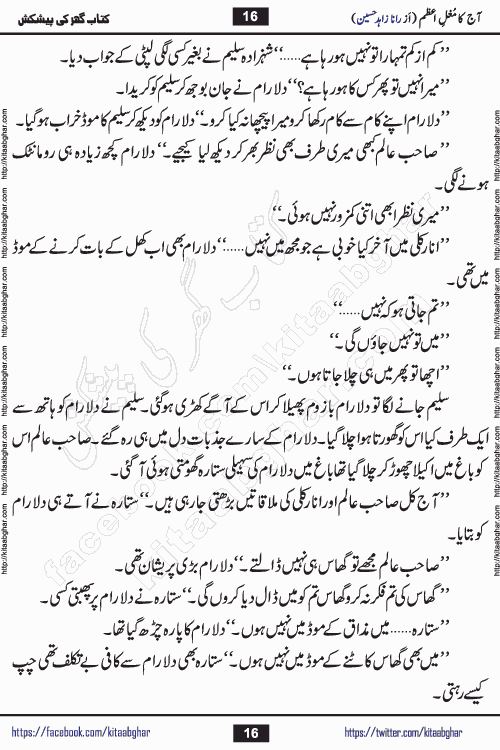 آج کا مُغلِ اعظم (از رانا زاہد حسین) 16 کتاب گھر کی پیشکش
’’کم از کم تمہارا تو نہیں ہو رہا ہے......‘‘ شہزادہ سلیم نے بغیر کسی لگی لپٹی کے جواب دیا۔
’’میرا نہیں تو پھر کس کا ہو رہا ہے؟‘‘ دلارام نے جان بوجھ کر سلیم کو کریدا۔
’’دلارام اپنے کام سے کام رکھا کرو میرا پیچھا نہ کیا کرو۔‘‘ دلارام کو دیکھ کر سلیم کا موڈ خراب ہو گیا۔
’’صاحب عالم کبھی میری طرف بھی نظر بھر کر دیکھ لیا کیجیے۔‘‘ دلارام کچھ زیادہ ہی رومانٹک
ہونے لگی۔
’’میری نظر ابھی اتنی کمزور نہیں ہوئی۔‘‘
’’انارکلی میں آخر کیا خوبی ہے جو مجھ میں نہیں......‘‘ دلارام بھی اب کھل کے بات کرنے کے موڈ
میں تھی۔
’’تم جاتی ہو کہ نہیں......‘‘
’’میں تو نہیں جاؤں گی۔‘‘
’’اچھا تو پھر میں ہی چلا جاتا ہوں۔‘‘
سلیم جانے لگا تو دلارام بازو پھیلا کر اس کے آگے کھڑی ہو گئی۔ سلیم نے دلارام کو ہاتھ سے
ایک طرف کیا اس کو گھورتا ہوا چلا گیا۔ دلارام کے سارے جذبات دل میں ہی رہ گئے۔ صاحب عالم اس
کو باغ میں اکیلا چھوڑ کر چلا گیا تھا باغ میں دلارام کی سہیلی ستارہ گھومتی ہوئی آ گئی۔
’’آج کل صاحب عالم اور انارکلی کی ملاقاتیں بڑھتی جا رہی ہیں۔‘‘ ستارہ نے آتے ہی دلارام
کو بتایا۔
’’صاحب عالم مجھے تو گھاس ہی نہیں ڈالتے۔‘‘ دلارام بڑی پریشان تھی۔
’’گھاس کی تم فکر نہ کرو گھاس تم کو میں ڈال دیا کروں گی۔‘‘ ستارہ نے دلارام پر پھبتی کسی۔
’’ستارہ...... میں مذاق کے موڈ میں نہیں ہوں۔‘‘ دلارام کا پارہ چڑھ گیا تھا۔
’’میں بھی گھاس کاٹنے کے موڈ میں نہیں ہوں۔‘‘ ستارہ بھی دلارام سے کافی بے تکلف تھی چپ
کیسے رہتی۔
https://facebook.com/kitaabghar 16 https://twitter.com/kitaabghar
http://kitaabghar.com http://kitaabghar.com http://kitaabghar.com http://kitaabghar.com http://kitaabghar.com http://kitaabghar.com
http://kitaabghar.com http://kitaabghar.com http://kitaabghar.com http://kitaabghar.com http://kitaabghar.com http://kitaabghar.com
کتاب گھر کی پیشکش
facebook.com/kitaabghar